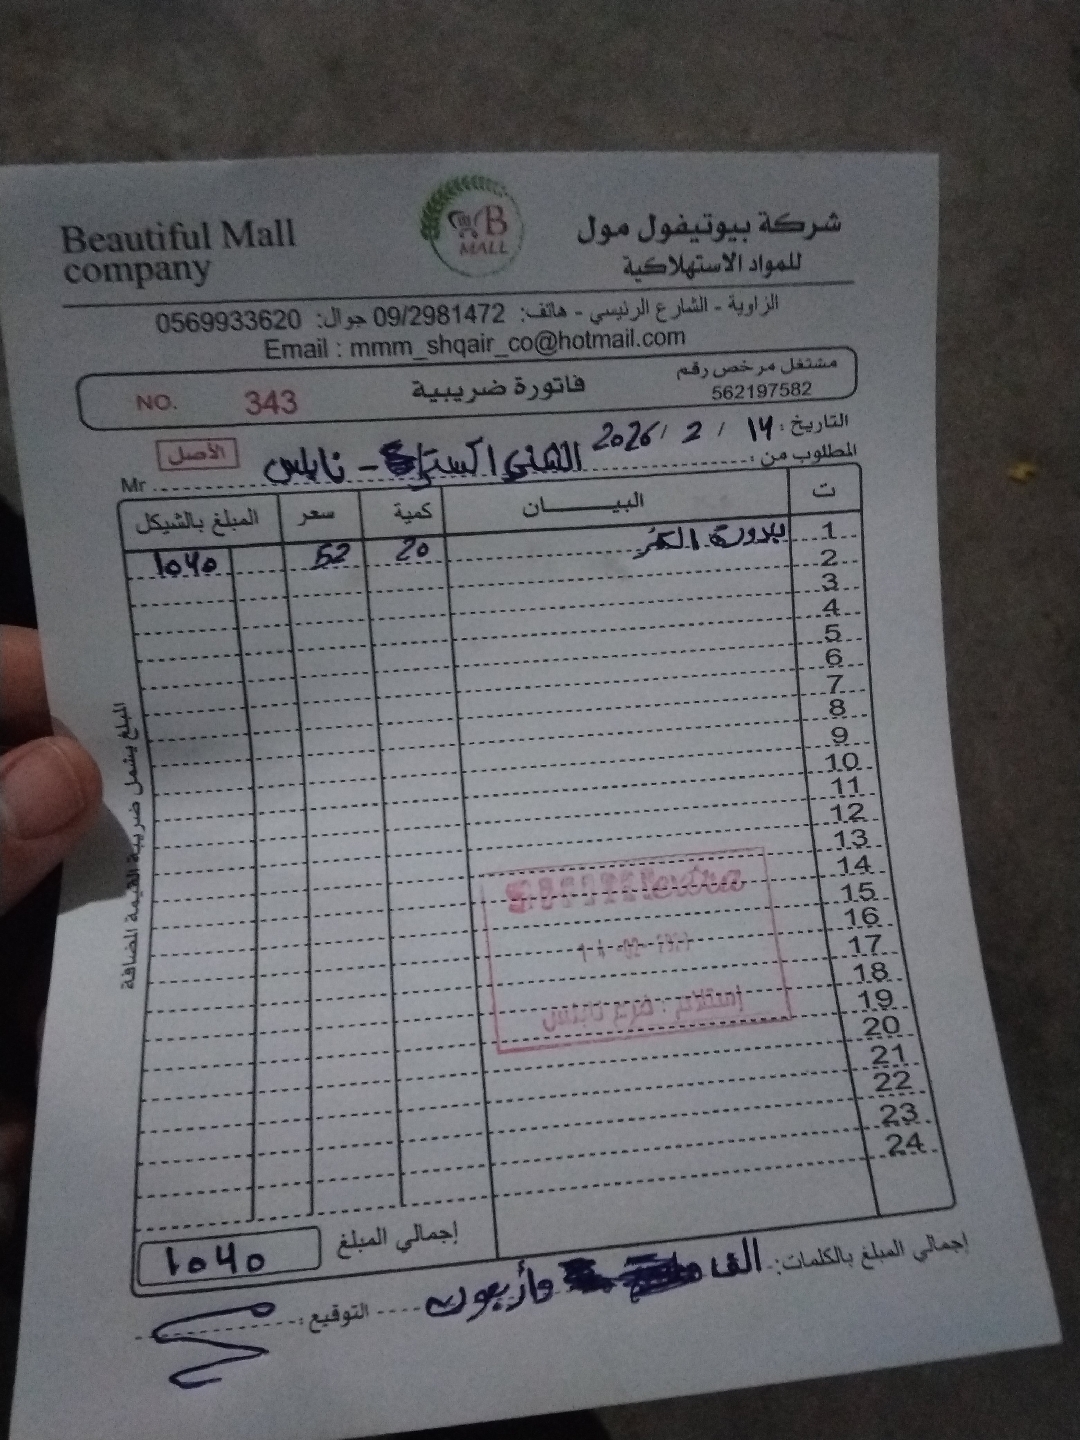 Beautiful Mall company
B MALL
شركة بيوتيفول مول
للمواد الاستهلاكية
الزاوية - الشارع الرئيسي - هاتف: 09/2981472 جوال: 0569933620
Email : mmm_shqair_co@hotmail.com
مشتغل مرخص رقم
562197582
فاتورة ضريبية
NO. 343
التاريخ: 14 / 2 / 2026
الأصل
المطلوب من: - نابلس Mr
ت البيـــــــان كمية سعر المبلغ بالشيكل
1 20 52 1040
2
3
4
5
6
7
8
9
10
11
12
13
14
15
16
17
18
19
20
21
22
23
24
المبلغ يشمل ضريبة القيمة المضافة
extra
إستلام : فرع نابلس
إجمالي المبلغ 1040
إجمالي المبلغ بالكلمات: الف وأربعون
التوقيع: